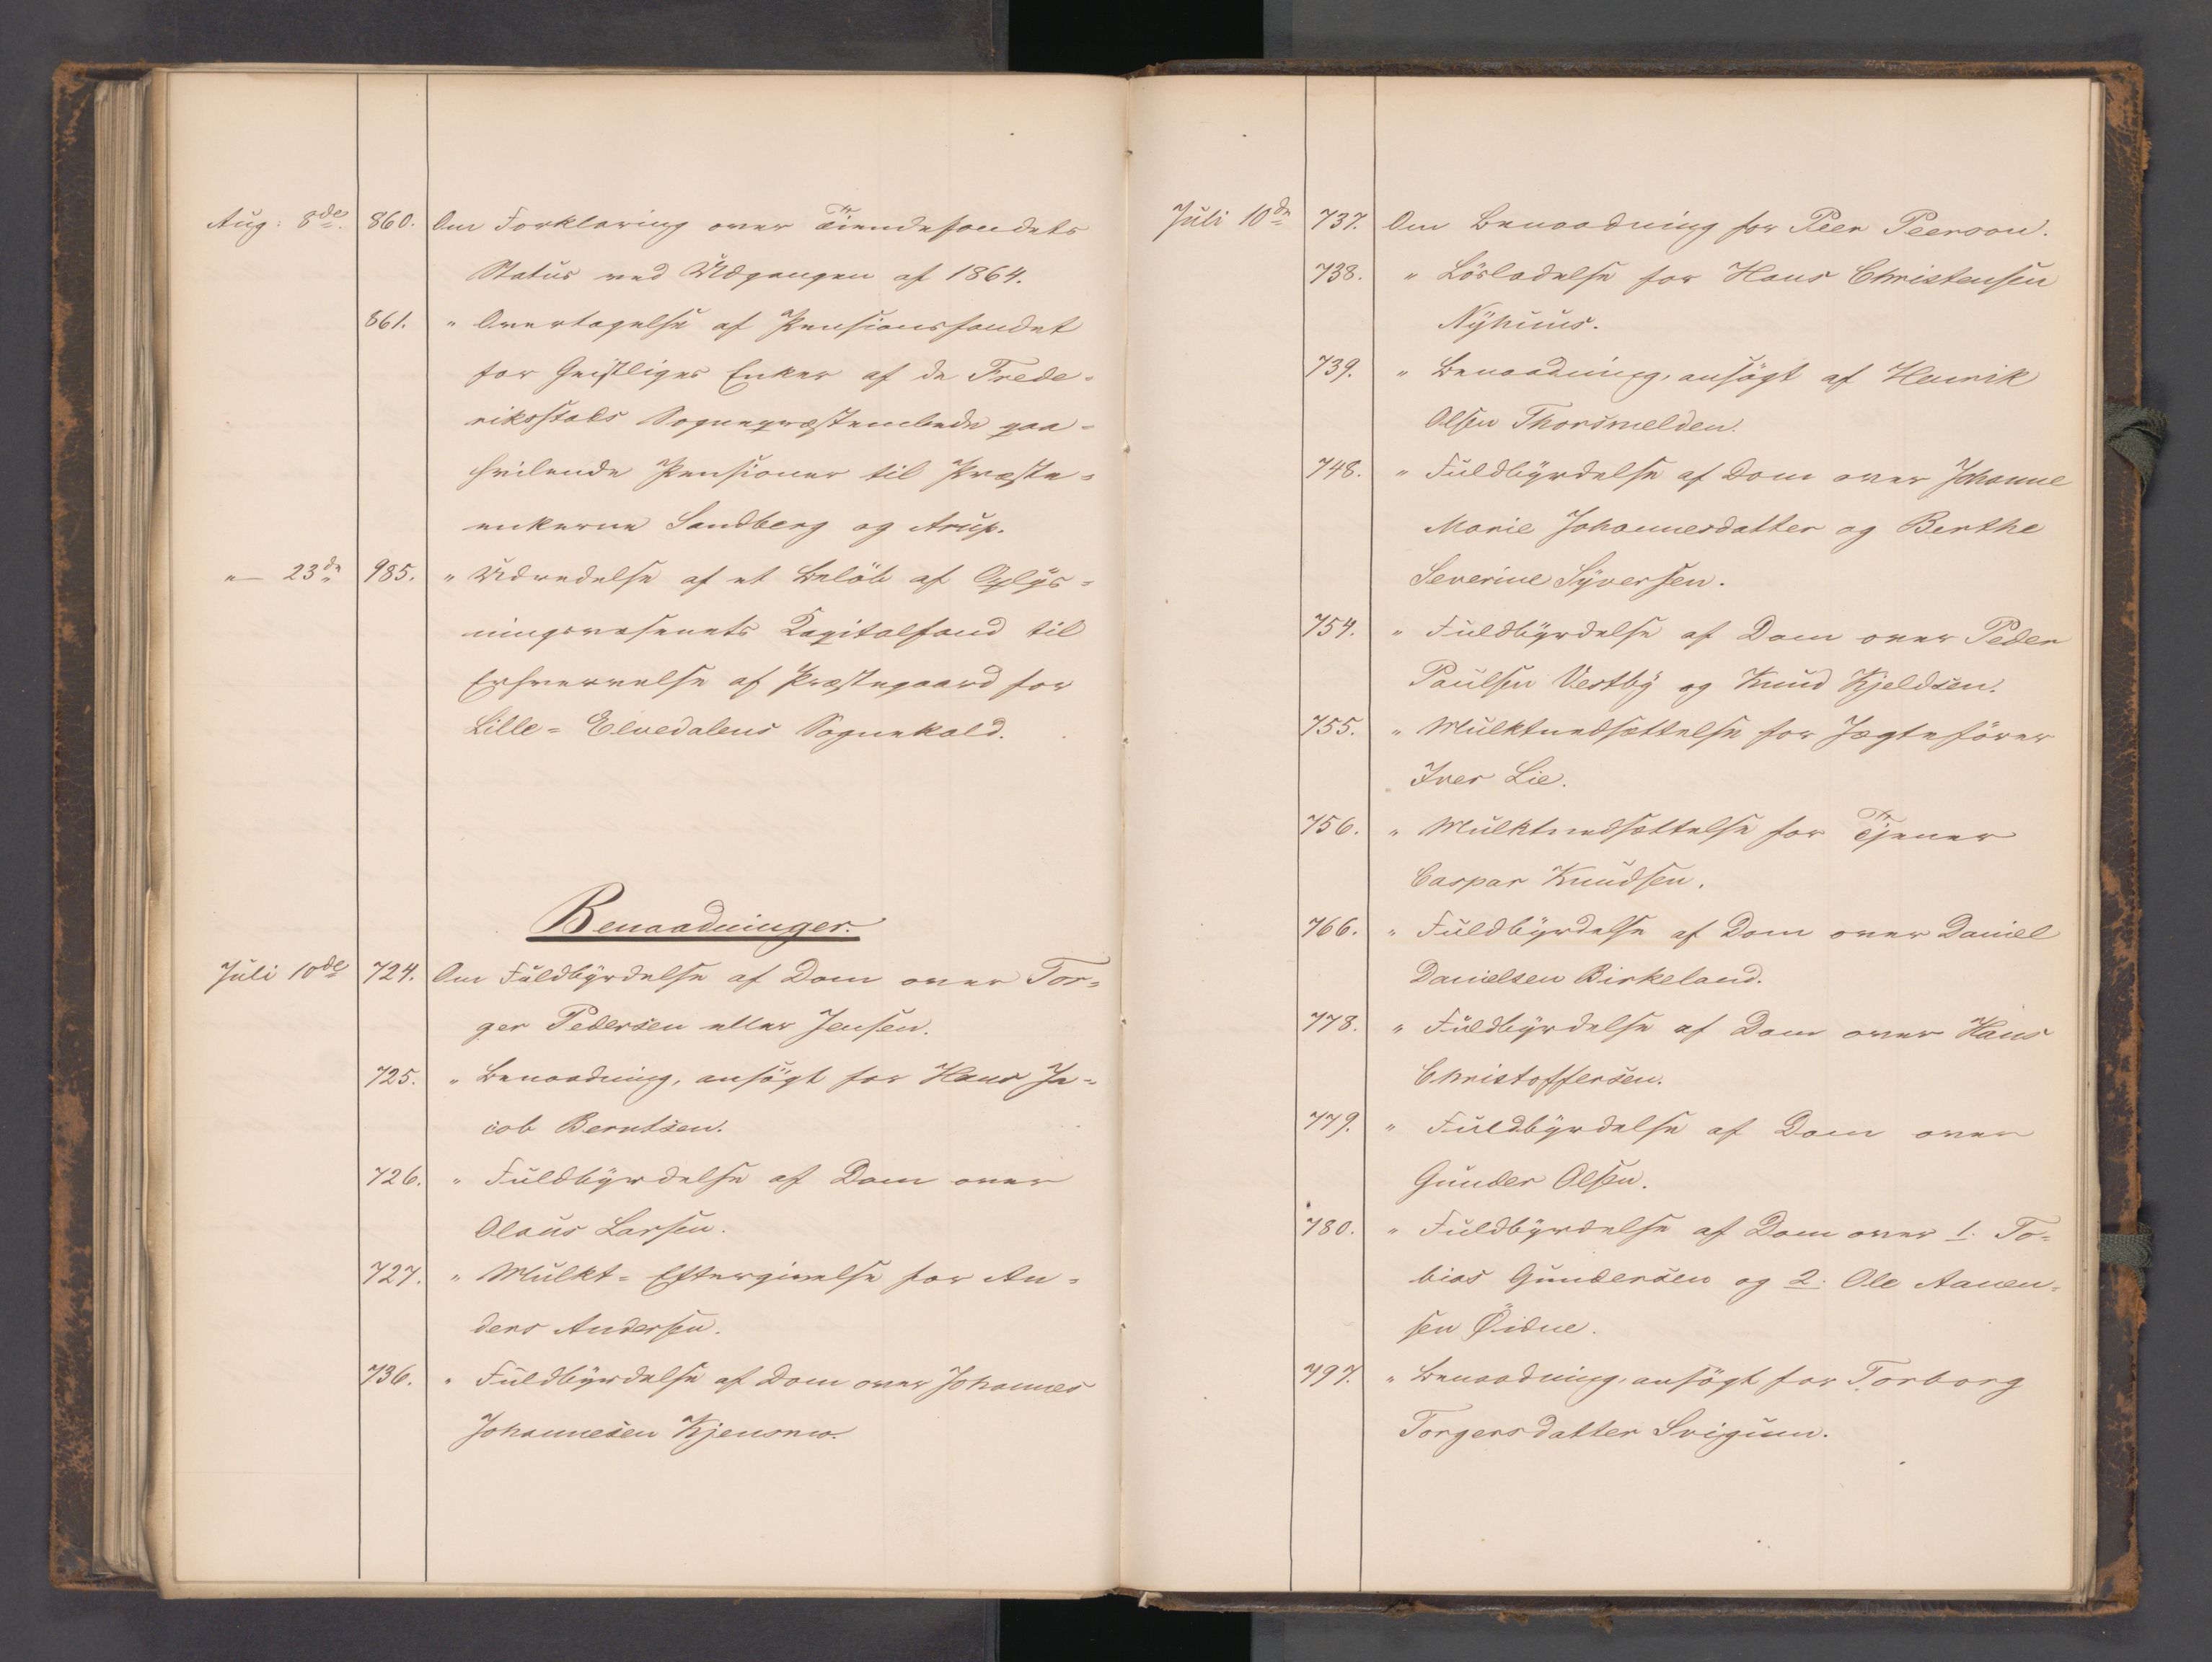 Aug: 8de. 860. Om Forklaring over Tiendefondets
Status ved Udgangen af 1864.
861. " Overtagelse af Pensionsfondet
for Geistliges Enker af de Frede-
riksstads Sognepræstembede paa-
hvilende Pensioner til Præste-
enkerne Sandberg og Arup.
"— 23de 985. " Udredelse af et Beløb af Oplys-
ningsvesenets Kapitalfond til
Erhvervelse af Præstegaard for
Lille-Elvedalens Sognekald.
Benaadninger.
Juli 10de 724. Om Fuldbyrdelse af Dom over Tor-
ger Pedersen eller Jensen.
725. " Benaadning, ansøgt for Hans Ja-
cob Berntsen.
726. " Fuldbyrdelse af Dom over
Olaus Larsen.
727. " Mulkt-Eftergivelse for An-
ders Andersen.
736. " Fuldbyrdelse af Dom over Johannes
Johannesen
Juli 10de 737. Om Benaadning for Peer Peerson.
738. " Løsladelse for Hans Christensen
Nyhuus.
739. " Benaadning, ansøgt af Henrik
Olsen Thorsmelden.
748. " Fuldbyrdelse af Dom over Johanne
Marie Johannesdatter og Berthe
Severine Syversen.
754. " Fuldbyrdelse af Dom over Peder
Paulsen Vestby og Knud Kjeldsen.
755. " Mulktnedsættelse for Jægtefører
Iver Lie.
756. " Mulktnedsættelse for Tjener
Caspar Knudsen.
766. " Fuldbyrdelse af Dom over Daniel
Danielsen Birkeland.
778. " Fuldbyrdelse af Dom over Hans
Christoffersen.
779. " Fuldbyrdelse af Dom over
Gunder Olsen.
780. " Fuldbyrdelse af Dom over 1. To-
bias Gundersen og 2. Ole Aanen-
sen Øidne.
797. " Benaadning, ansøgt for Torborg
Torgersdatter Svigum.